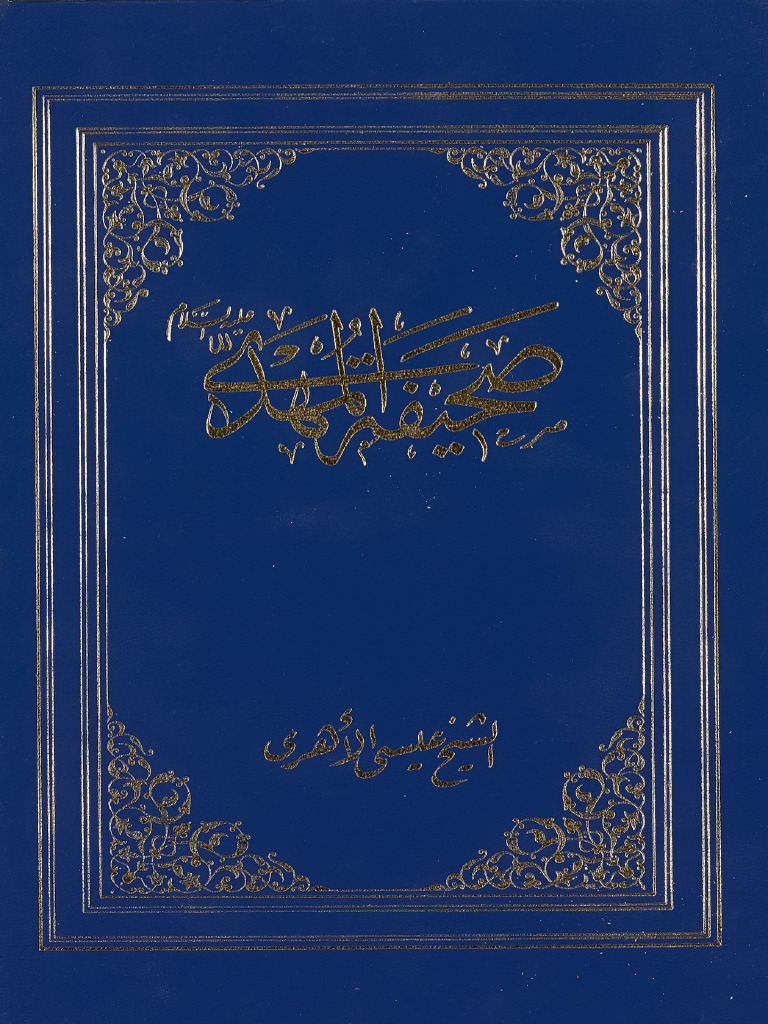 صحيفة المهدي عليه السلام
الشيخ عيسى الأهرى